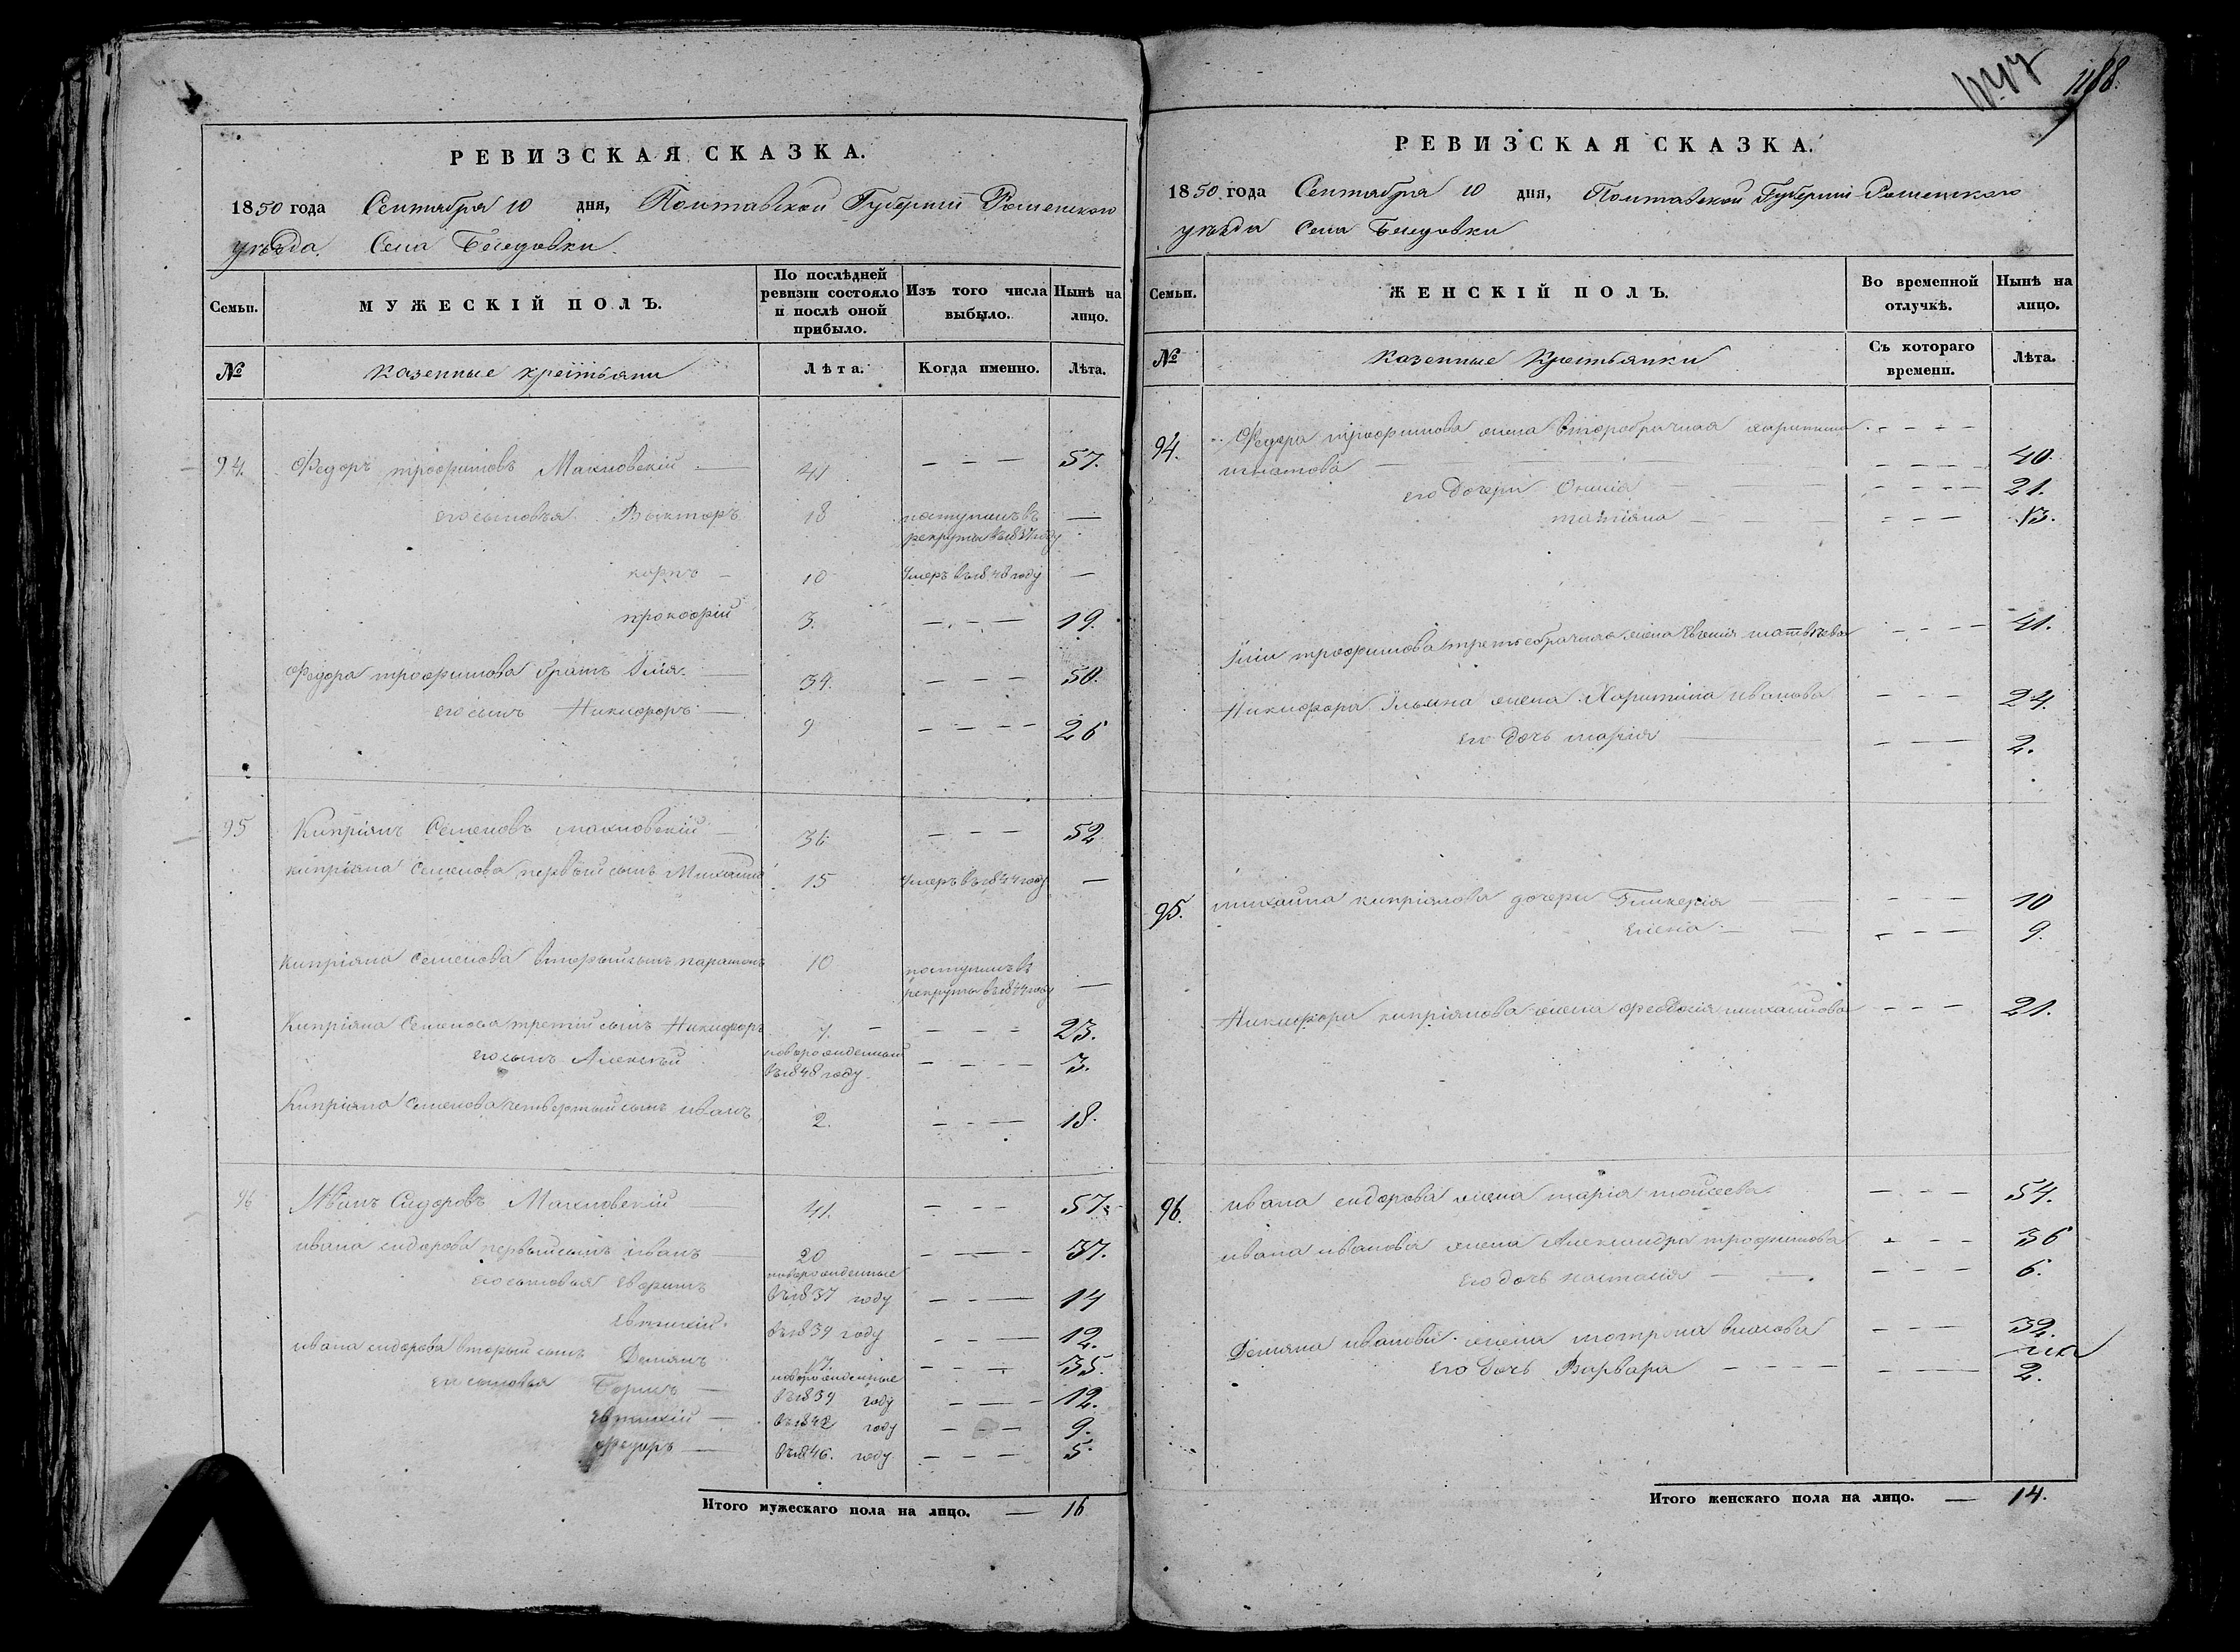 РЕВИЗСКАЯ СКАЗКА.
1850 года Сентября 10 дня, Полтавской Губерніи Роменского
уѣзда. Села
Семьи. МУЖЕСКІЙ ПОЛЪ. По послѣдней ревизіи состояло и послѣ оной прибыло. Изъ того числа выбыло. Нынѣ на лицо.
№ Казенные крестьяни Лѣта. Когда именно. Лѣта.
94. Федоръ трофимовъ Махновскій — 41 — — — 57.
его сыновья Викторъ 18 поступилъ въ —
рекруты въ 1837 году
карпъ — 10 Умеръ въ 1848 году —
прокофій 3. — — — 19.
Федора трофимова братъ Илія. — 34. — — — 50.
его сынъ Никифоръ — 9 — — — — 26
95 Кипріянъ Семеновъ махновскій — 36 — — — 52
кипріяна Семенова первый сынъ Михаила 15 Умеръ въ 1844 году —
Кипріяна Семенова вторый сынъ парамонъ 10 поступилъ въ
рекруты въ 1844 году —
Кипріяна Семенова третій сынъ Никифоръ 7. — — — — 23.
его сынъ Алексѣй новорожденный
въ 1848 году — — — — 3.
Кипріяна Семенова четвертый сынъ иванъ 2. — — — 18.
96 Иванъ Сидоровъ Махновскій — 41. — — — 57.
ивана сидорова первый сынъ иванъ — 20 — — — 37.
его сыновья новорожденные
въ 1837 году — — — 14
Евтихій. въ 1839 году — — — 12.
ивана сидорова вторый сынъ Демянъ — — — — 35.
его сыновья Борисъ — новорожденные
въ 1839 году — — — 12.
Евтихій — въ 1842 году — — — 9.
Федоръ — въ 1846. году — — — 5.
Итого мужескаго пола на лицо. — 16
1188.
РЕВИЗСКАЯ СКАЗКА.
1850 года Сентября 10 дня, Полтавской Губерніи Роменского
уѣзда Села
Семьи. ЖЕНСКІЙ ПОЛЪ. Во временной отлучкѣ. Нынѣ на лицо.
№ Казенные Крестьянки Съ котораго времени. Лѣта.
94. Федора трофимова жена второбрачная харитина — — — —
игнатова — — — — 40.
его дочери — — — — 21.
татіяна — — — — 13.
Іліи трофимова третьебрачная жена Евгенія матвѣева — — — — 41.
Никифора Ільина жена Харитина иванова — — — 24.
его дочь марія — — — 2.
95. михаила кипріянова дочери Гликерія — — — 10
елена — — — — 9.
Никифора кипріянова жена феодосія михаилова — — — 21.
96. ивана сидорова жена марія моисеева — — — 54.
ивана иванова жена Александра трофимова — — — 36
его дочь настасія — — — — 6.
Демяна иванова жена мотрона власова — — — 32.
его дочь Варвара — — — — 2.
Итого женскаго пола на лицо. — 14.